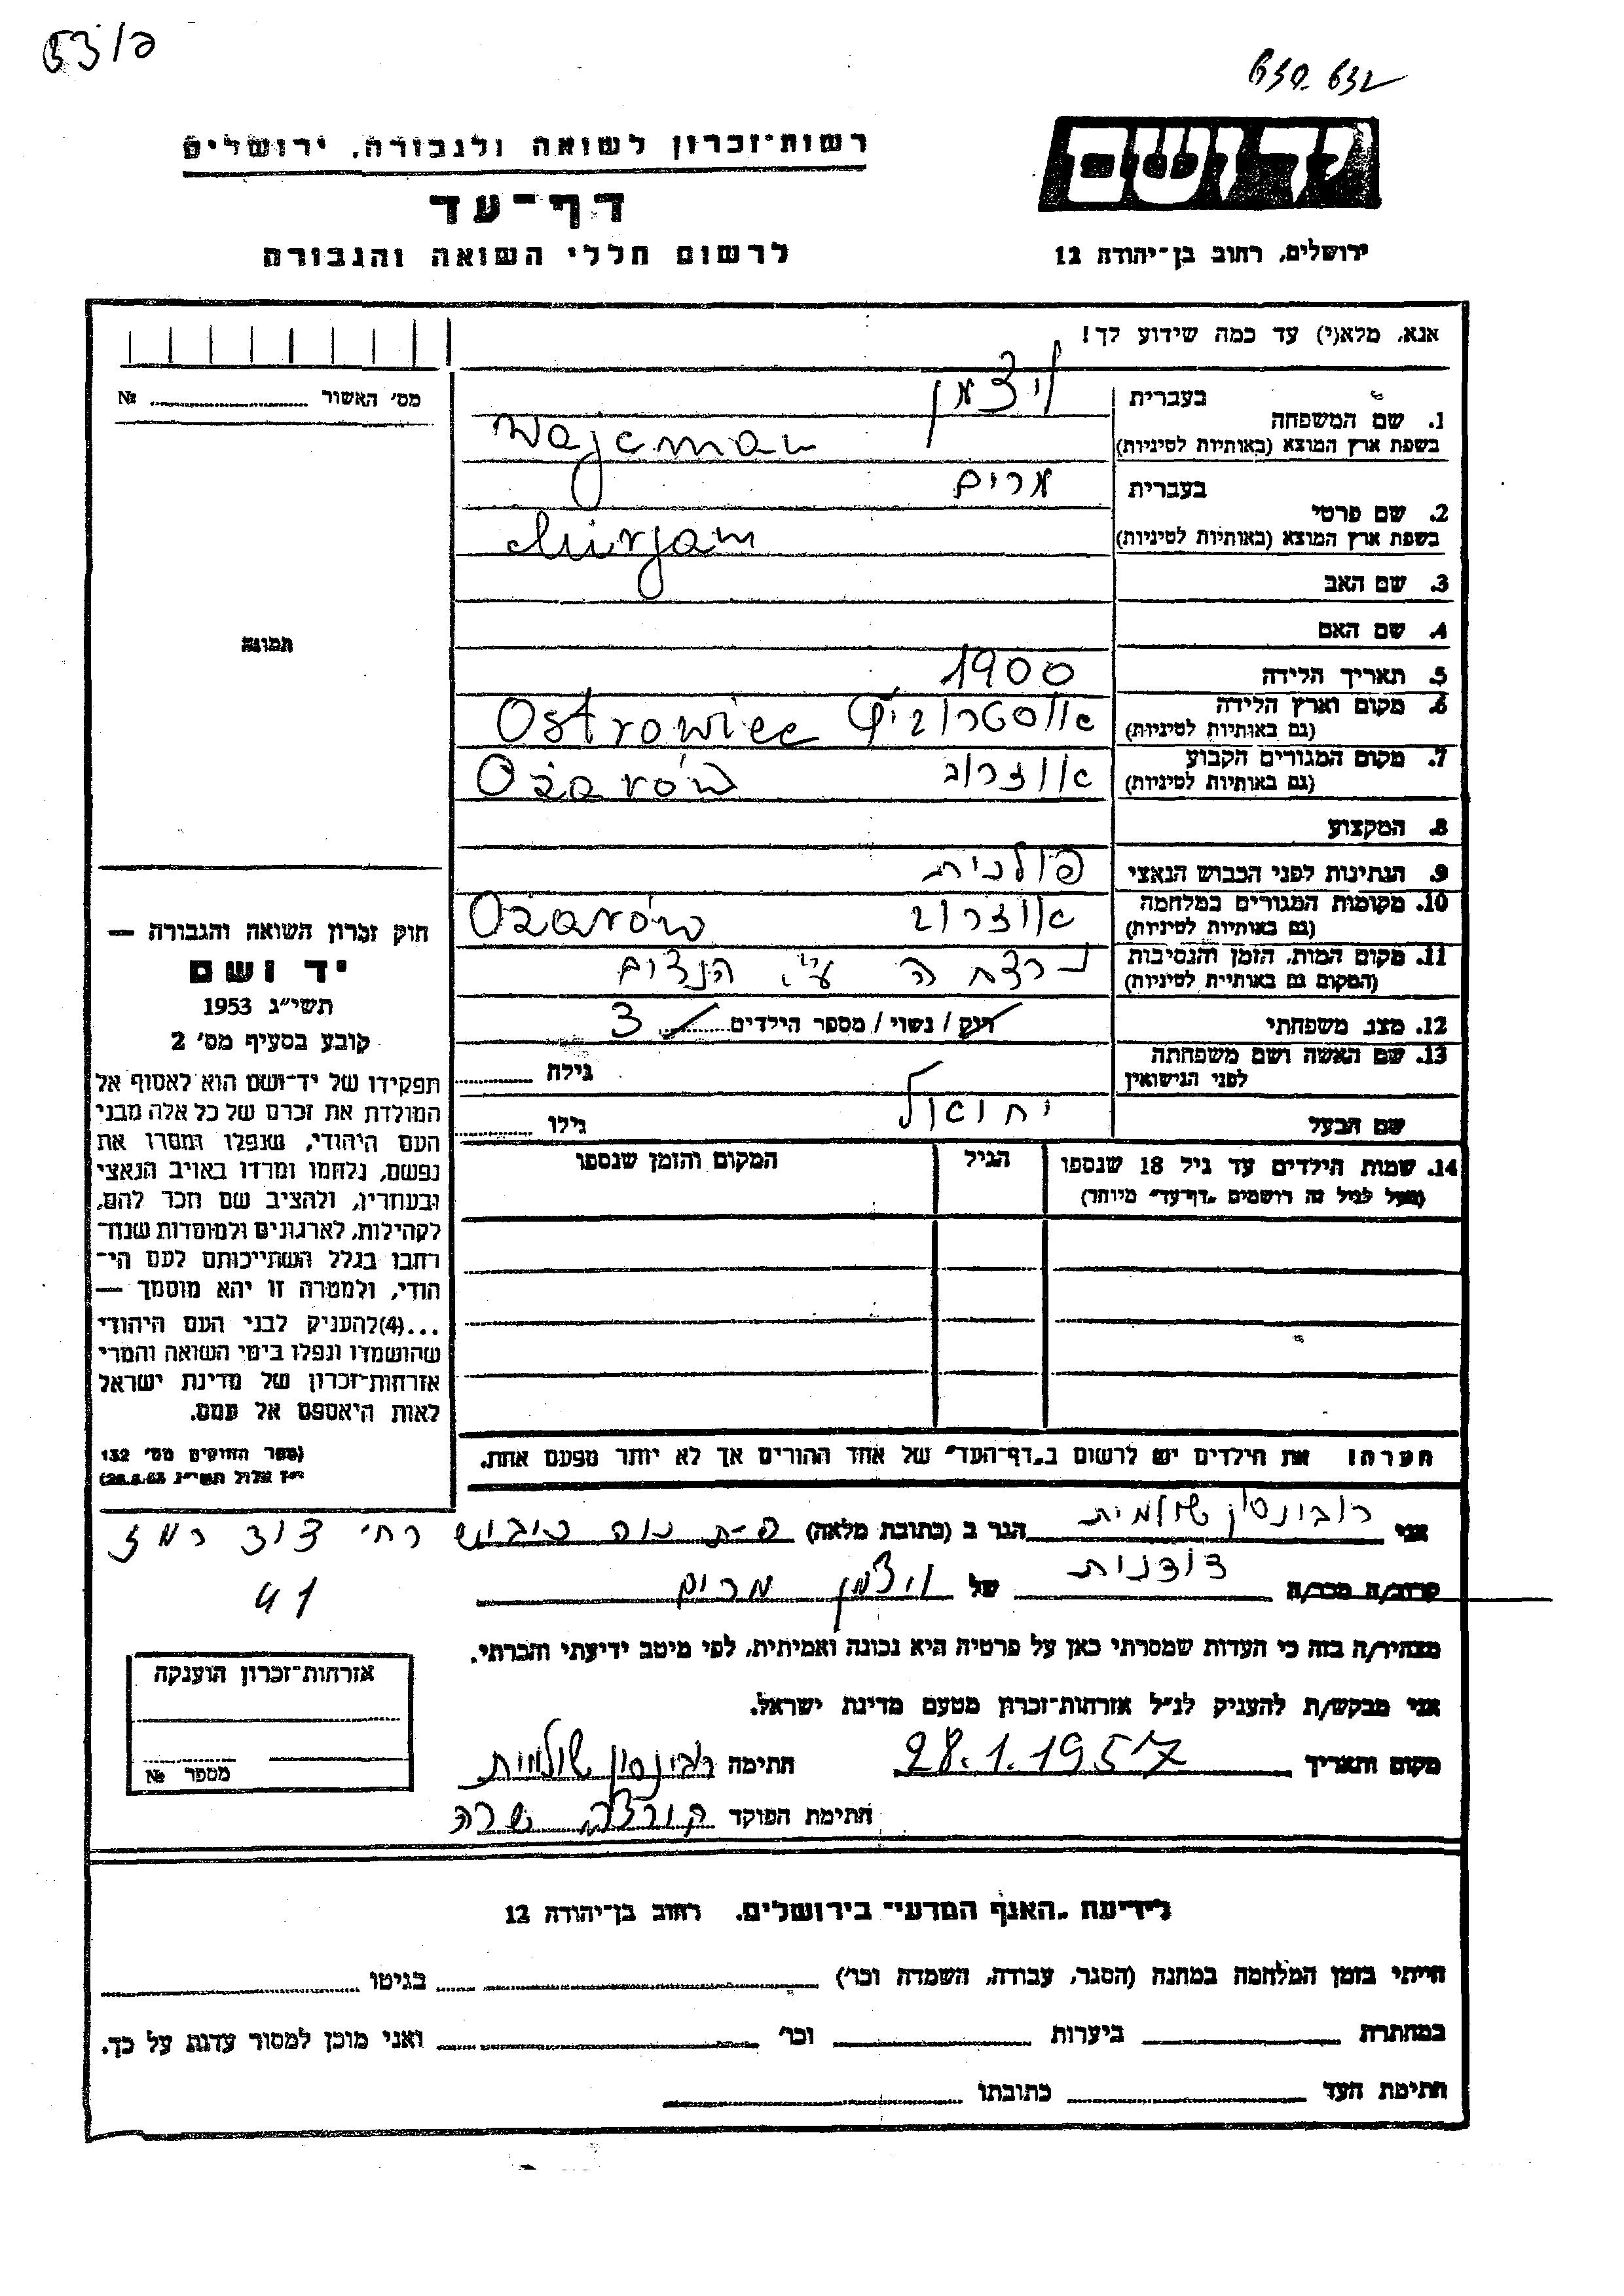 53/פ
630.632
יד ושם
רשות־זכרון לשואה ולגבורה, ירושלים
דף־עד
לרשום חללי השואה והגבורה
ירושלים, רחוב בן־יהודה 12
אנא, מלא(י) עד כמה שידוע לך!
מס' האשור № 
1. שם המשפחה
בעברית ויצמן
בשפת ארץ המוצא (באותיות לטיניות) Wajcman
2. שם פרטי
בעברית מרים
בשפת ארץ המוצא (באותיות לטיניות) Mirjam
3. שם האב
4. שם האם
תמונה
5. תאריך הלידה 1900
6. מקום וארץ הלידה אוסטרוביץ Ostrowiec
(גם באותיות לטיניות)
7. מקום המגורים הקבוע אוזרוב Ożarów
(גם באותיות לטיניות)
8. המקצוע
9. הנתינות לפני הכבוש הנאצי פולנית
10. מקומות המגורים במלחמה אוזרוב Ożarów
(גם באותיות לטיניות)
11. מקום המות, הזמן והנסיבות נרצחה ע"י הנצים
(המקום גם באותיות לטיניות)
12. מצב משפחתי רוק / נשוי / מספר הילדים 3
13. שם האשה ושם משפחתה
לפני הנישואין
גילה
שם הבעל יחזאל
גילו
14. שמות הילדים עד גיל 18 שנספו
(מעל לגיל זה רושמים "דף־עד" מיוחד)
הגיל
המקום והזמן שנספו
הערה: את הילדים יש לרשום ב"דף־העד" של אחד ההורים אך לא יותר מפעם אחת.
חוק זכרון השואה והגבורה —
יד ושם
תשי"ג 1953
קובע בסעיף מס' 2
תפקידו של יד־ושם הוא לאסוף אל
המולדת את זכרם של כל אלה מבני
העם היהודי, שנפלו ומסרו את
נפשם, נלחמו ומרדו באויב הנאצי
ובעוזריו, ולהציב שם וזכר להם,
לקהילות, לארגונים ולמוסדות שנח־
רבו בגלל השתייכותם לעם הי־
הודי, ולמטרה זו יהא מוסמך —
...(4) להעניק לבני העם היהודי
שהושמדו ונפלו בימי השואה והמרי
אזרחות־זכרון של מדינת ישראל
לאות היאספם אל עמם.
(ספר החוקים מס' 132
י"ז אלול תשי"ג 28.8.53)
אני רובינסון שולמית הגר ב (כתובת מלאה) פ-ת נוה כיבוש רח' דוד רמז
41
קרוב/ה מכר/ה דודנות של ויצמן מרים
מצהיר/ה בזה כי העדות שמסרתי כאן על פרטיה היא נכונה ואמיתית, לפי מיטב ידיעתי והכרתי.
אני מבקש/ת להעניק לנ"ל אזרחות־זכרון מטעם מדינת ישראל.
מקום ותאריך 28.1.1957 חתימה רבינסון שולמית
חתימת הפוקד שרה
אזרחות־זכרון הוענקה
מספר №
לידיעת "האגף המדעי" בירושלים, רחוב בן־יהודה 12
הייתי בזמן המלחמה במחנה (הסגר, עבודה, השמדה וכו') בגיטו
במחתרת ביערות וכו' ואני מוכן למסור עדות על כך.
חתימת העד כתובתו